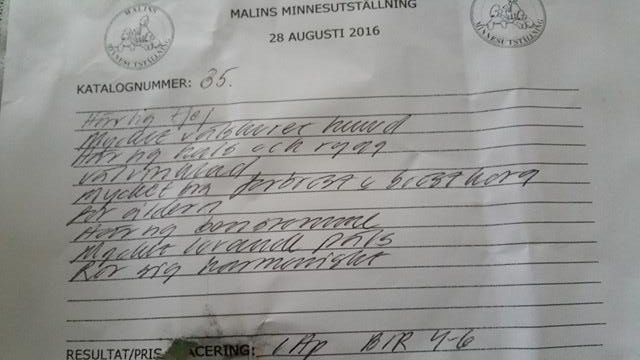 MALINS MINNESUTSTÄLLNING
28 AUGUSTI 2016
MALINS
MINNESUTSTÄLLNING
MALINS
MINNESUTSTÄLLNING
KATALOGNUMMER: 35.
Härlig tjej
Mycket välskuret huvud
Härlig hals och rygg
välvinklad
Mycket bröstkorg
för åldern
Härlig benstomme
Mycket lovande päls
Rör sig harmoniskt
RESULTAT/PRIS ACERING: 1 Hp BIR 4-6